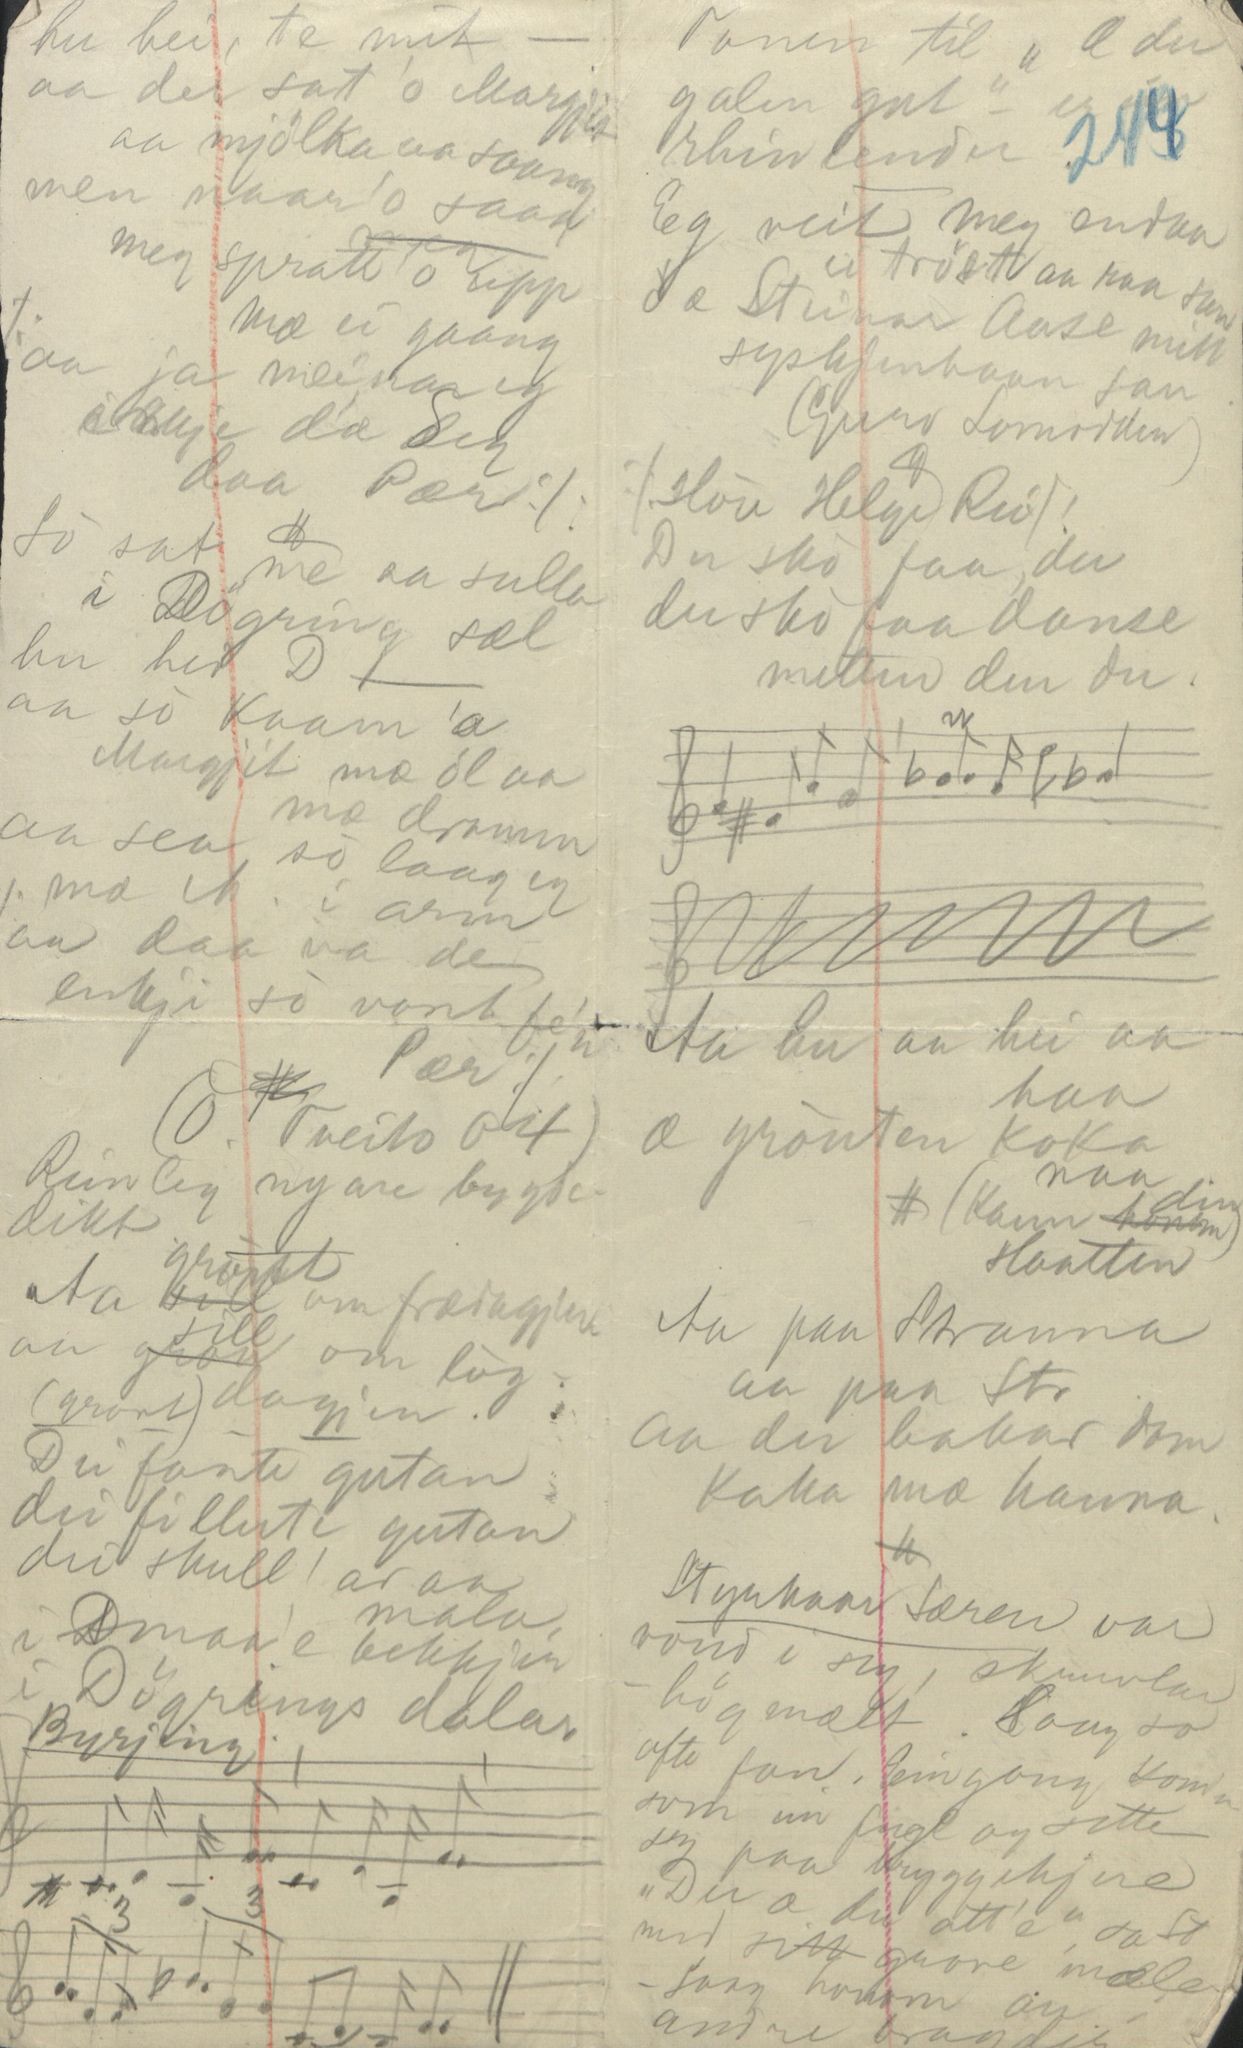 hu hei, te mit —
aa der sat 'o Margjit
aa mjölka aa saang
men naar 'o saag
meg spratt 'o upp
mæ ei gaang
/: aa ja meinar eg
inkje dæ Seg
daa Pær :/:
Sò sat me aa sulla
i Dögring sæl
hu hei D —
aa sò kaam 'a
Margjit mæ öl aa
mæ dramm
aa sea, sò laag eg
/: mæ M. i arm
aa daa va de
enkji sò vont fe'n
Pær :/:
(O. Tveito 64)
Rimleg nyare bygde-
dikt
grönt
Aa sill om frædagjen
sill
aa gròn om lög-
(grönt) dagjen.
Dei fante gutan
dei fillute gutan
dei skull' ar aa
mala,
i Dmaa'e bekkjin
i Dögrings dalar
Byrjing.
3 3
Tonen til "Æ du
galen gut" er ein
rhinlender.
218
Eg veit meg endaa
ei tröst aa naa san
dæ Steinar Aase mitt
syskjenbaan san.
(Guro Lomodden)
/: Höir Helge Rui :/!
Du skò faa, du
du skò faa danse
metten den du.
Aa hu aa hei aa
haa
æ gròuten koka
naa
(Kann din
honom)
Haatten
Aa paa Stranna
aa paa Str
Aa der bakar dom
kaka mæ hanna.
Styrkaar Særen var
vond i seg, skravlar
högmælt. Saag so
ofte fan. Eingong kom'n
som ein fugl og sette
seg paa bryggekjere
"Der æ du att'e" sa St
med sitt grove mæle
– Saag honom au i
andre bragder